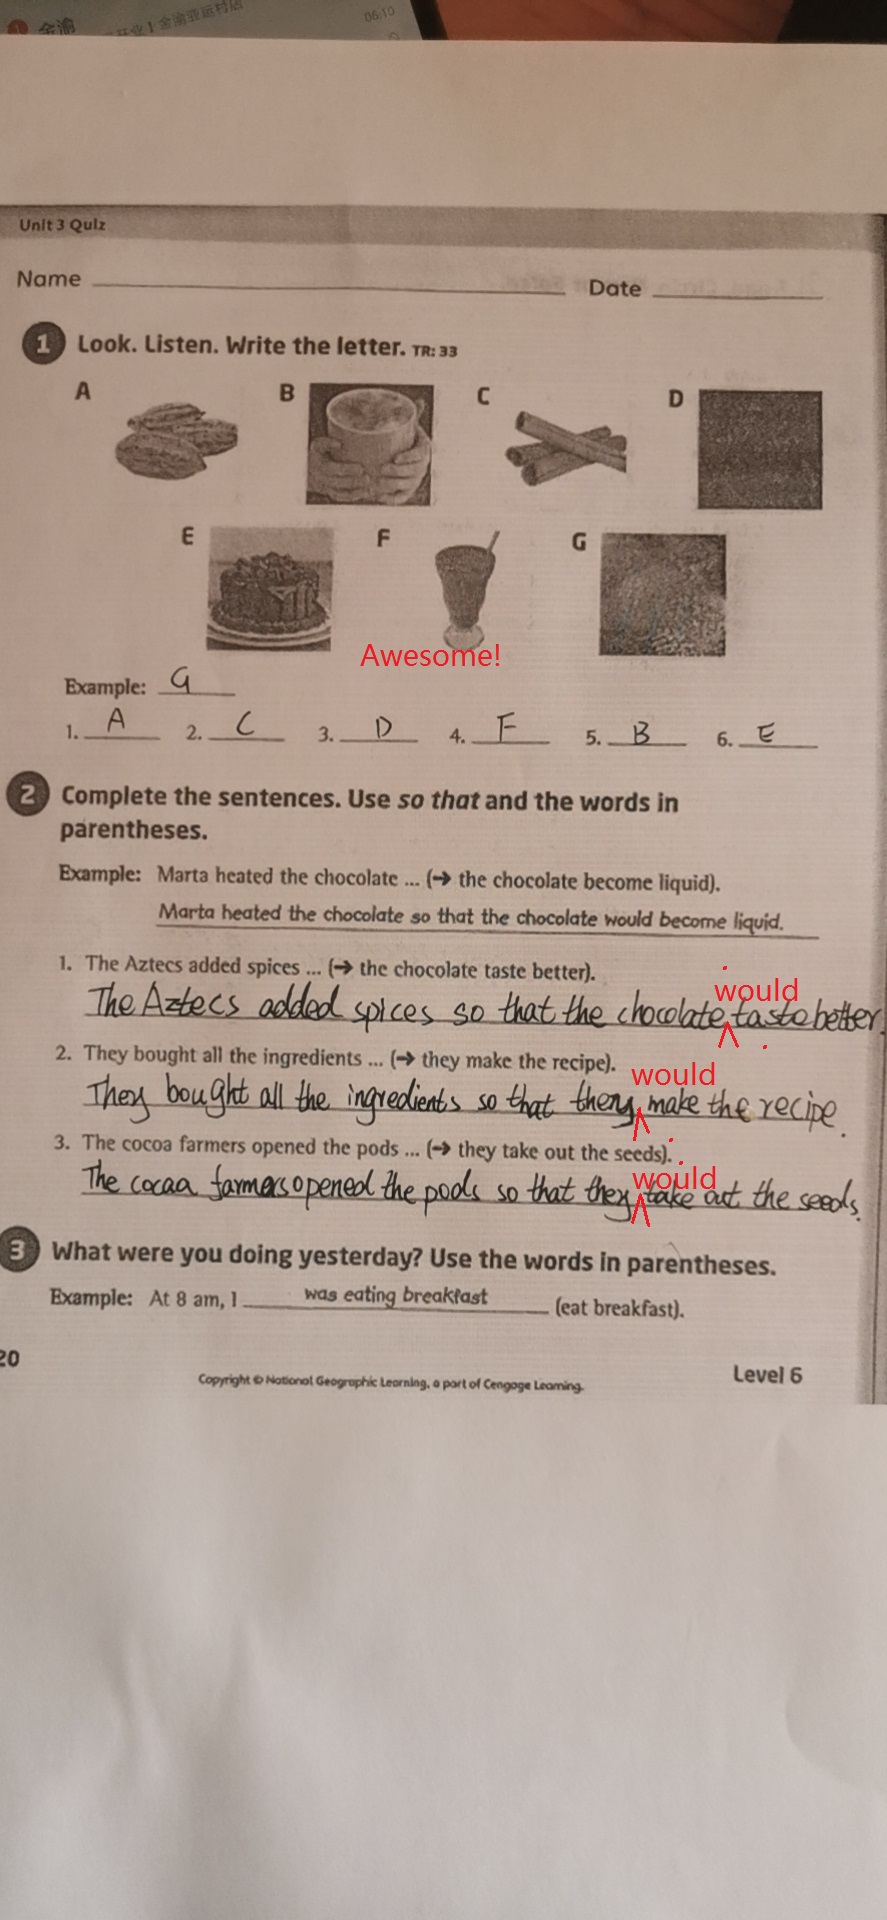 金渝
金渝亚运村店
06:10
Unit 3 Quiz
Name
Date
1 Look. Listen. Write the letter. TR: 33
A B C D
E F G
Awesome!
Example: G
1. A 2. C 3. D 4. F 5. B 6. E
2 Complete the sentences. Use so that and the words in
parentheses.
Example: Marta heated the chocolate ... (→ the chocolate become liquid).
Marta heated the chocolate so that the chocolate would become liquid.
1. The Aztecs added spices ... (→ the chocolate taste better).
would
The Aztecs added spices so that the chocolate taste better.
2. They bought all the ingredients ... (→ they make the recipe).
would
They bought all the ingredients so that they make the recipe.
3. The cocoa farmers opened the pods ... (→ they take out the seeds).
would
The cocaa farmers opened the pods so that they take out the seeds.
3 What were you doing yesterday? Use the words in parentheses.
Example: At 8 am, I was eating breakfast (eat breakfast).
20
Copyright © National Geographic Learning, a part of Cengage Learning.
Level 6